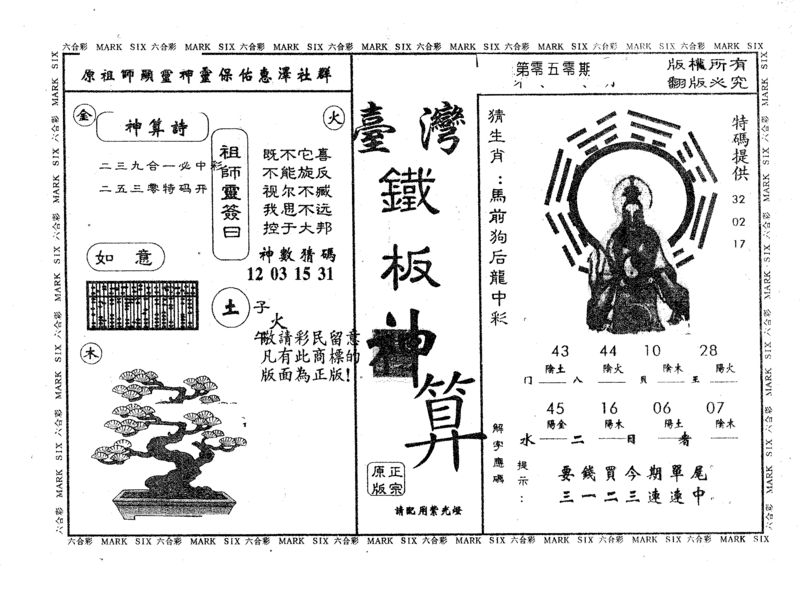 六合彩 MARK SIX 六合彩 MARK SIX 六合彩 MARK SIX 六合彩 MARK SIX 六合彩 MARK SIX 六合彩 MARK SIX 六合彩 MARK SIX 六合彩 MARK SIX
原祖師顯靈神靈保佑惠澤社群
金
神算詩
火
二三九合一必中彩
二五三零特码开
祖師靈簽曰
既不它喜
不能旋反
视尔不臧
我思不远
控于大邦
神數猜碼
12 03 15 31
如意
土
子
火
午敬請彩民留意
凡有此商標的
版面為正版!
木
臺灣
鐵板神算
正宗原版
請配用紫光燈
第零五零期
版權所有
翻版必究
猜生肖:馬前狗后龍中彩
特碼提供
32
02
17
43 44 10 28
陰土 陰火 陰木 陽火
門 八 貝 至
45 16 06 07
陽金 陽木 陽土 陰木
水 二 日 者
解字應碼
提示:
要錢買今期單尾
三一二三連連中
六合彩 MARK SIX 六合彩 MARK SIX 六合彩 MARK SIX 六合彩 MARK SIX 六合彩 MARK SIX 六合彩 MARK SIX 六合彩 MARK SIX 六合彩 MARK SIX